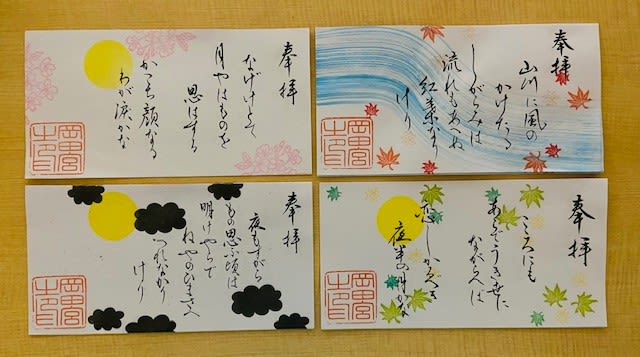 奉拝
山川に風の
かけたる
しがらみは
流れもあへぬ
紅葉なり
けり
奉拝
なげけとて
月やはものを
思はする
かこち顔なる
わが涙かな
奉拝
こころにも
あらでうき世に
ながらへば
恋しかるべき
夜半の月かな
奉拝
夜もすがら
もの思ふ頃は
明けやらで
ねやのひまさへ
つれなかり
けり